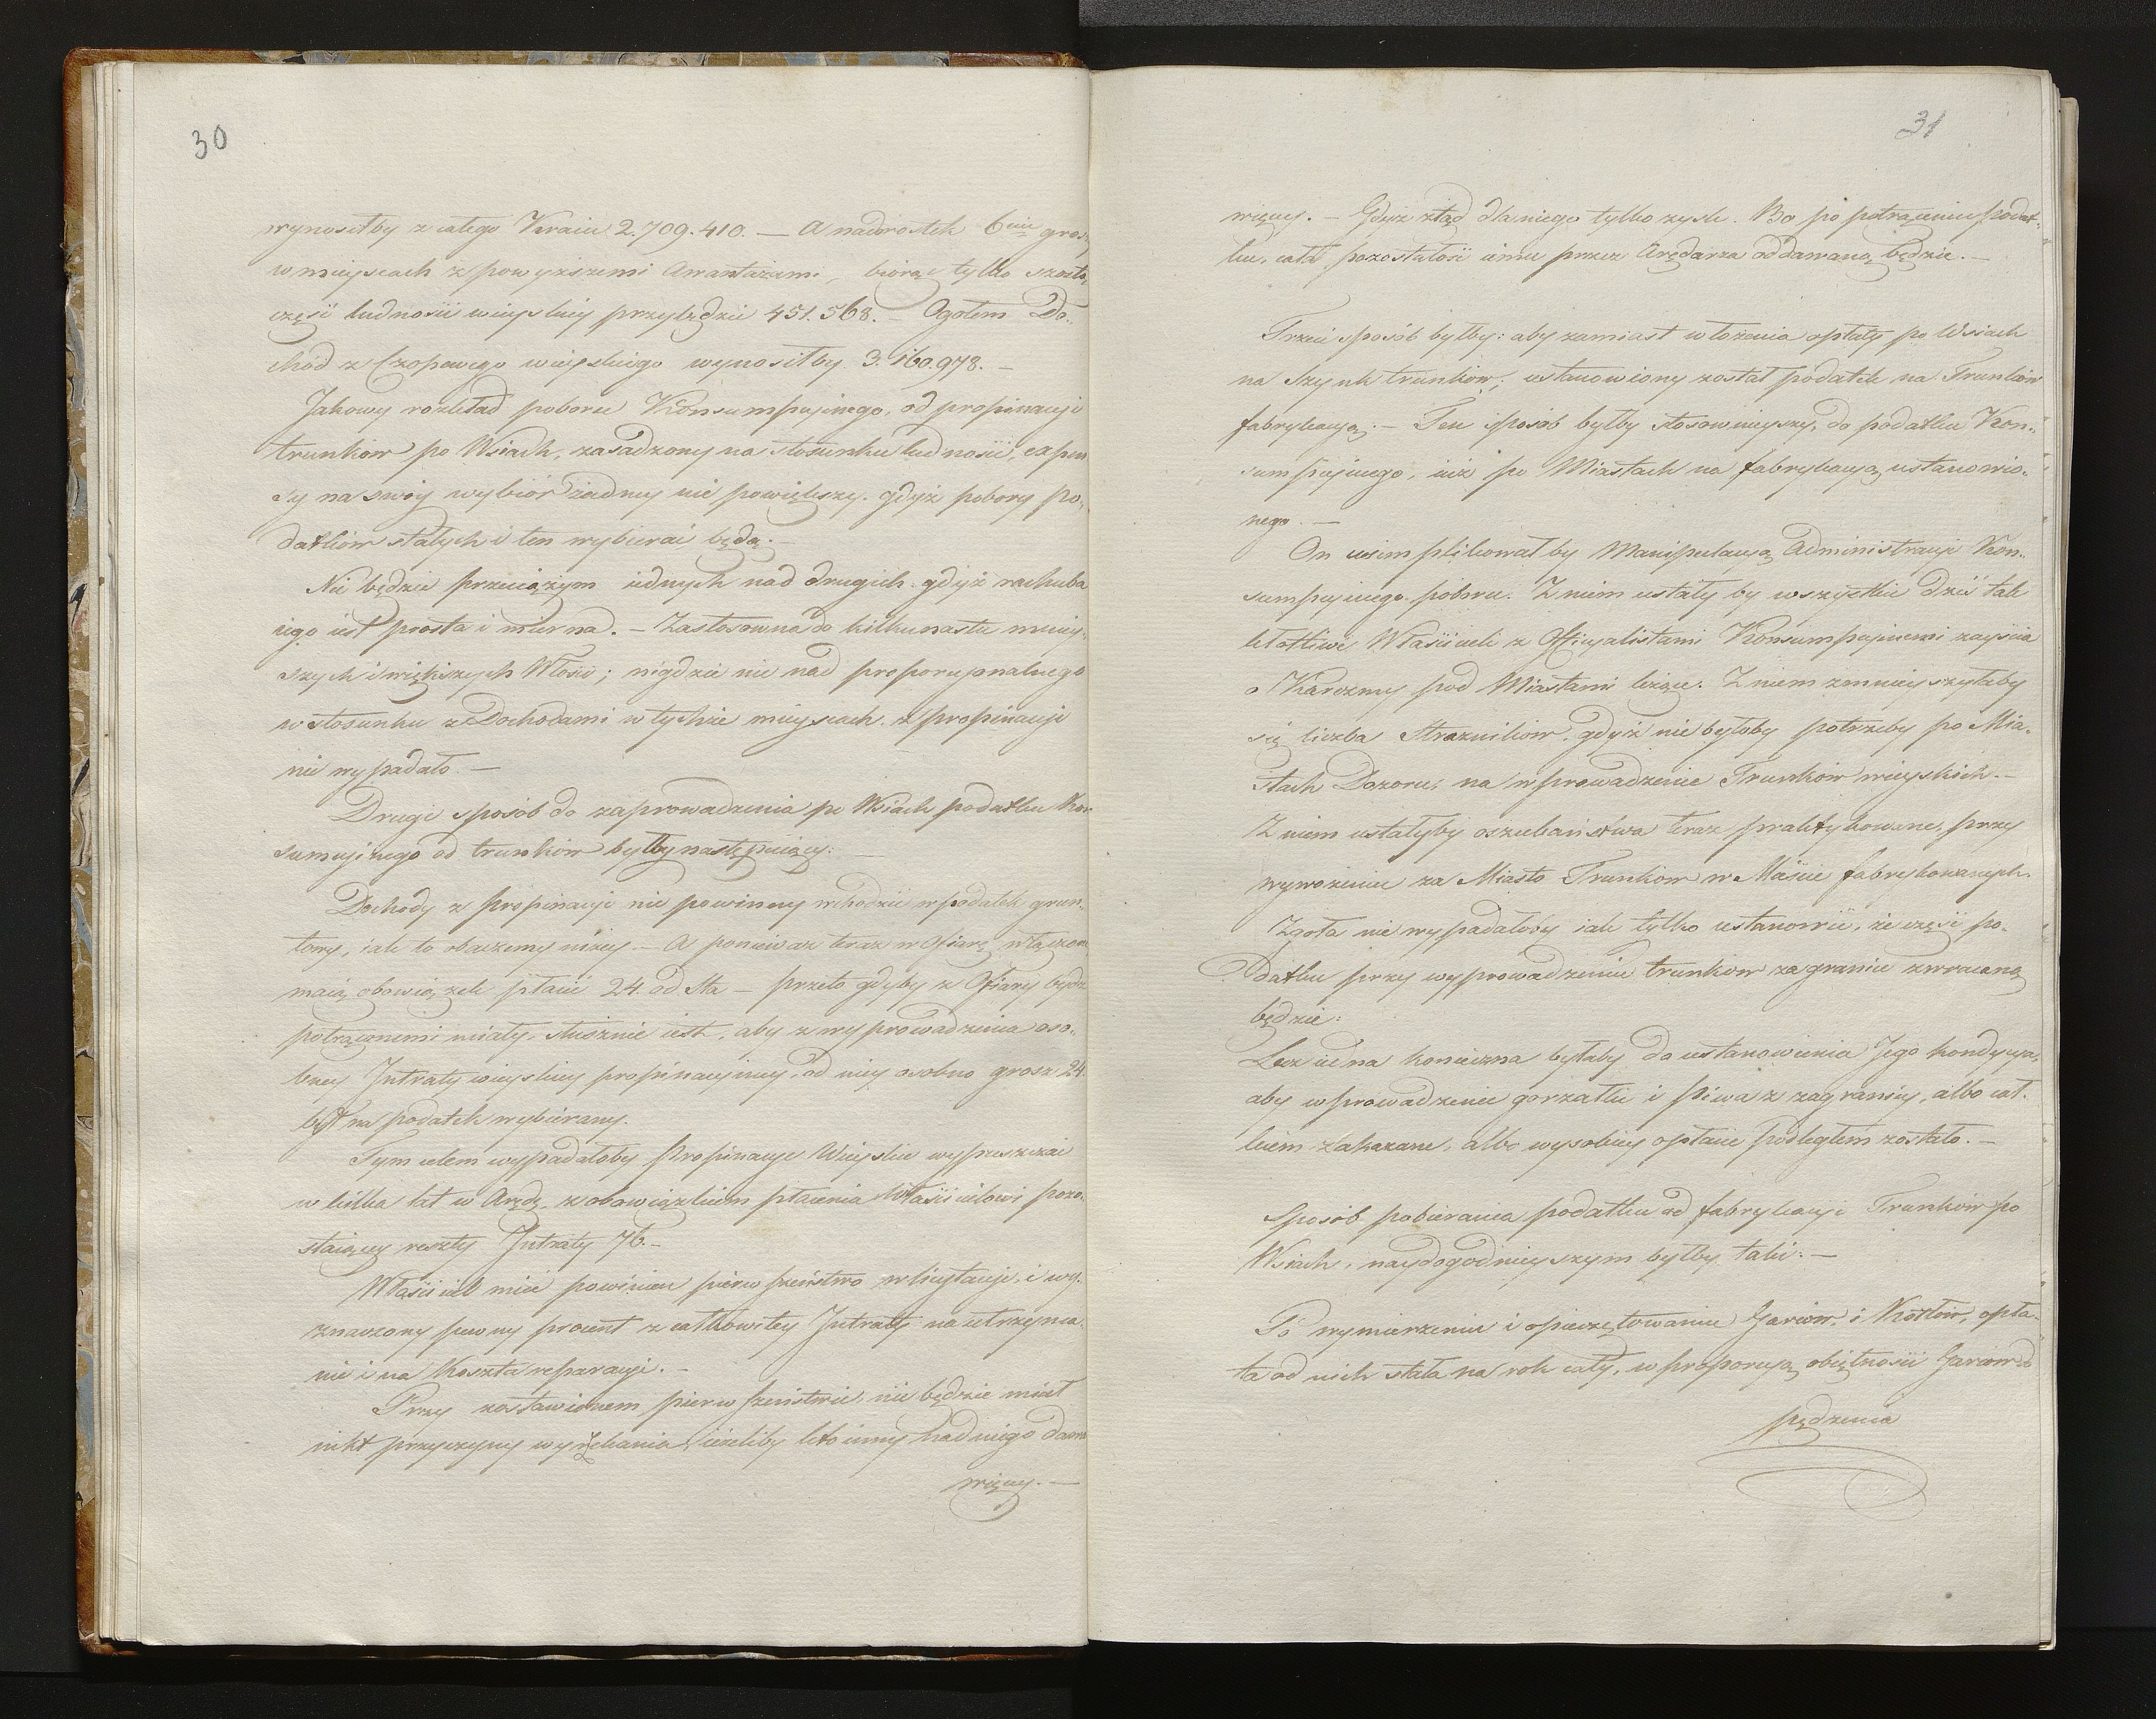 30
wynosiłby z całego Kraiu 2.709.410. — A nadrostek 6ciu grosz
w mieyscach z powyższemi Awantażami, biorąc tylko szostą
część ludności wieyskiey przybędzie 451.568. — Ogołem Do-
chód z Czopowego wieyskiego wynosiłby 3.160.978. —
Jakowy rozkład poboru Konsumpcyinego, od propinacyi
trunkow po Wsiach, zasadzony na stosunku ludności, expen
sy na swóy wybiór żadney nie powiększy. gdyż pobory po-
datków stałych i ten wybierać będą. —
Nie będzie przeciążym iednych nad drugich. gdyż rachuba
iego iest prosta i . — Zastosowna do kilkunastu mniey-
szych i większych Włości; nigdzie nie nad proporcyonalnego
w stosunku z Dochodami w tychże mieyscach z propinacyi
nie wypadało. —
Drugi sposób do zaprowadzenia po Wsiach podatku Kon
sumcyinego od trunków byłby następuiący: —
Dochody z propinacyi nie powinny wchodzić w podatek grun-
towy, iak to obaczemy niżey. — A ponieważ teraz w Ofiarę włączone
maią obowiązek płacić 24. od Sta — przeto gdyby z Ofiary bydź
potrąconemi miały, słusznie iest, aby z wyprowadzenia oso-
bney Jntraty wieyskiey propinacyiney, od niey osobno grosz 24.
był na podatek wybierany.
Tym celem wypadałoby Propinacye Wieyskie wypuszczać
w kilka lat w Arędę z obowiązkiem płacenia Właścicielowi pozo-
staiącey reszty Jntraty 76. —
Właściciel mieć powinien pierwszeństwo w licytacyi, i wy-
znaczony pewny procent z całkowitey Jntraty na utrzyma-
nie i na Koszta reparacyi. —
Przy zostawionem pierwszeństwie, nie będzie miał
nikt przyczyny wyrzekania, ieżeliby kto inny nad niego dawał
więcey. —
31
więcey. — Gdyż ztąd dla niego tylko zysk. Bo po potrąceniu podat-
ku, cała pozostałość iemu przez Arędarza oddawaną będzie. —
Trzeci sposób byłby: aby zamiast włożenia opłaty po Wsiach
na Szynk trunków; ustanowiony został podatek na Trunków
fabrykacyą. — Ten sposób byłby stosownieyszy, do podatku Kon-
sumpcyinego, iuż po Miastach na fabrykacyą ustanowio-
nego. —
On usimplikowałby Manipulacyą Administracyi Kon-
sumpcyinego poboru. Z niem ustały by wszystkie dziś tak
kłotliwe Właścicieli z Officyalistami Konsumpcyinemi zayścia
o Karczmy pod Miastami leżące. Z niem zmnieyszyłaby
się liczba Strażników, gdyż nie byłoby potrzeby po Mia-
stach Dozoru, na wprowadzenie Trunków wieyskich. —
Z niem ustałyby oszukaństwa teraz praktykowane, przy
wywożeniu za Miasto Trunków w Mieście fabrykowanych.
Zgoła nie wypadałoby iak tylko ustanowić, że część po-
datku przy wyprowadzeniu trunkow za granicę zwracaną
będzie:
Lecz iedna konieczna byłaby do ustanowienia Jego kondycya,
aby wprowadzenie gorzałki i piwa z zagranicy, albo cał-
kiem zakazane, albo wysokiey opłacie podległem zostało. —
Sposób pobierania podatku od fabrykacyi Trunków po
Wsiach, naydogodnieyszym byłby taki: —
Po wymierzeniu i opieczętowaniu Garców, i Kotłów, opła-
ta od nich stała na rok cały, w proporcyą obiętności Garcow do
pędzenia